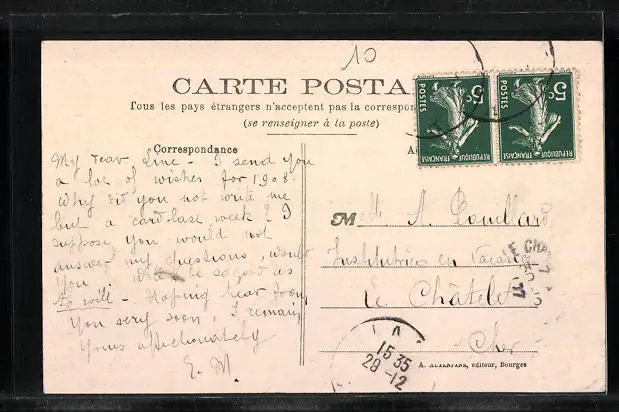 10
CARTE POSTA
Tous les pays étrangers n'acceptent pas la correspon
(se renseigner à la poste)
Correspondance
A
5c
POSTES
REPUBLIQUE FRANÇAISE
5c
POSTES
REPUBLIQUE FRANÇAISE
My dear Line - I send you
a lot of wishes for 1908.
Why did you not write me
but a card last week? I
suppose you would not
answer my questions, would
you be so good as
to will - Hoping hear from
you very soon, I remain
yours affectionately
E. M.
M A. Pouillard
Institutrice en
Le Châtelet
Cher
LE CHA
15 35
28 -12
éditeur, Bourges